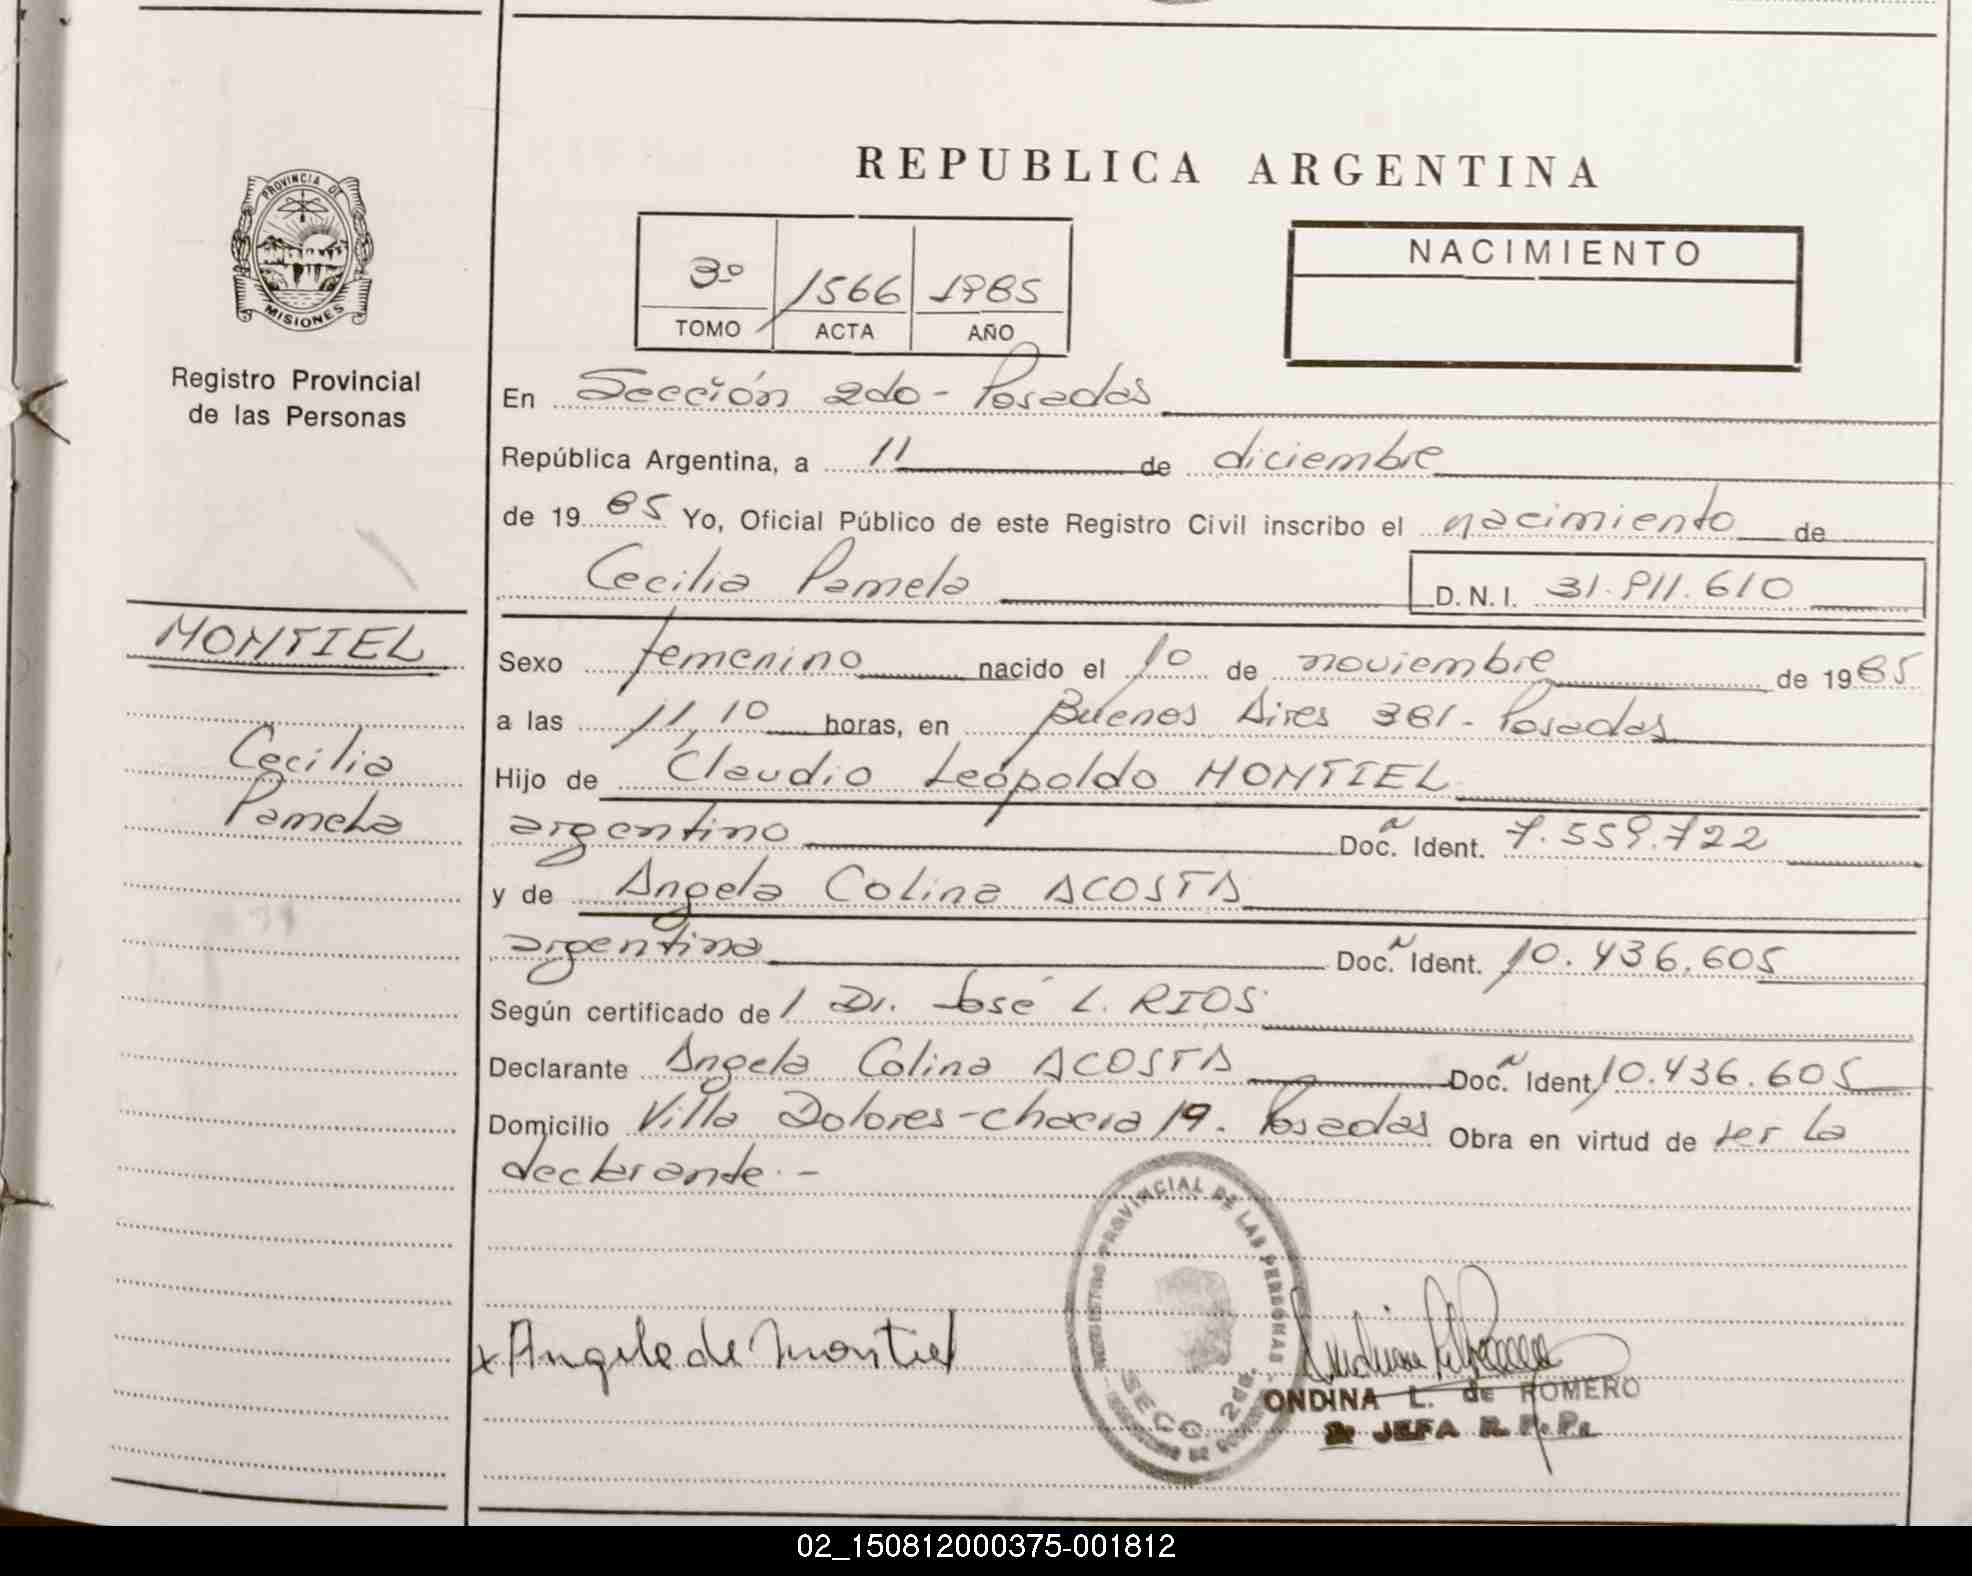 REPUBLICA ARGENTINA
PROVINCIA DE
MISIONES
Registro Provincial
de las Personas
3º 1566 1985
TOMO ACTA AÑO
NACIMIENTO
En Sección 2do - Posadas
República Argentina, a 11 de diciembre
de 19 85 Yo, Oficial Público de este Registro Civil inscribo el nacimiento de
Cecilia Pamela D.N.I. 31.911.610
MONTIEL
Cecilia
Pamela
Sexo femenino nacido el 10 de noviembre de 19 85
a las 11,10 horas, en Buenos Aires 381 - Posadas
Hijo de Claudio Leopoldo MONTIEL
argentino Doc. Ident. 7.559.722
y de Angela Colina ACOSTA
argentina Doc. Ident. 10.436.605
Según certificado de 1 Dr. José L. RIOS
Declarante Angela Colina ACOSTA Doc. Ident. 10.436.605
Domicilio Villa Dolores - chacra 19. Posadas Obra en virtud de ser la
declarante. -
x Angela de Montiel
REGISTRO PROVINCIAL DE LAS PERSONAS
SECC. 2da.
ONDINA L. de ROMERO
JEFA R. P. P.
02_150812000375-001812